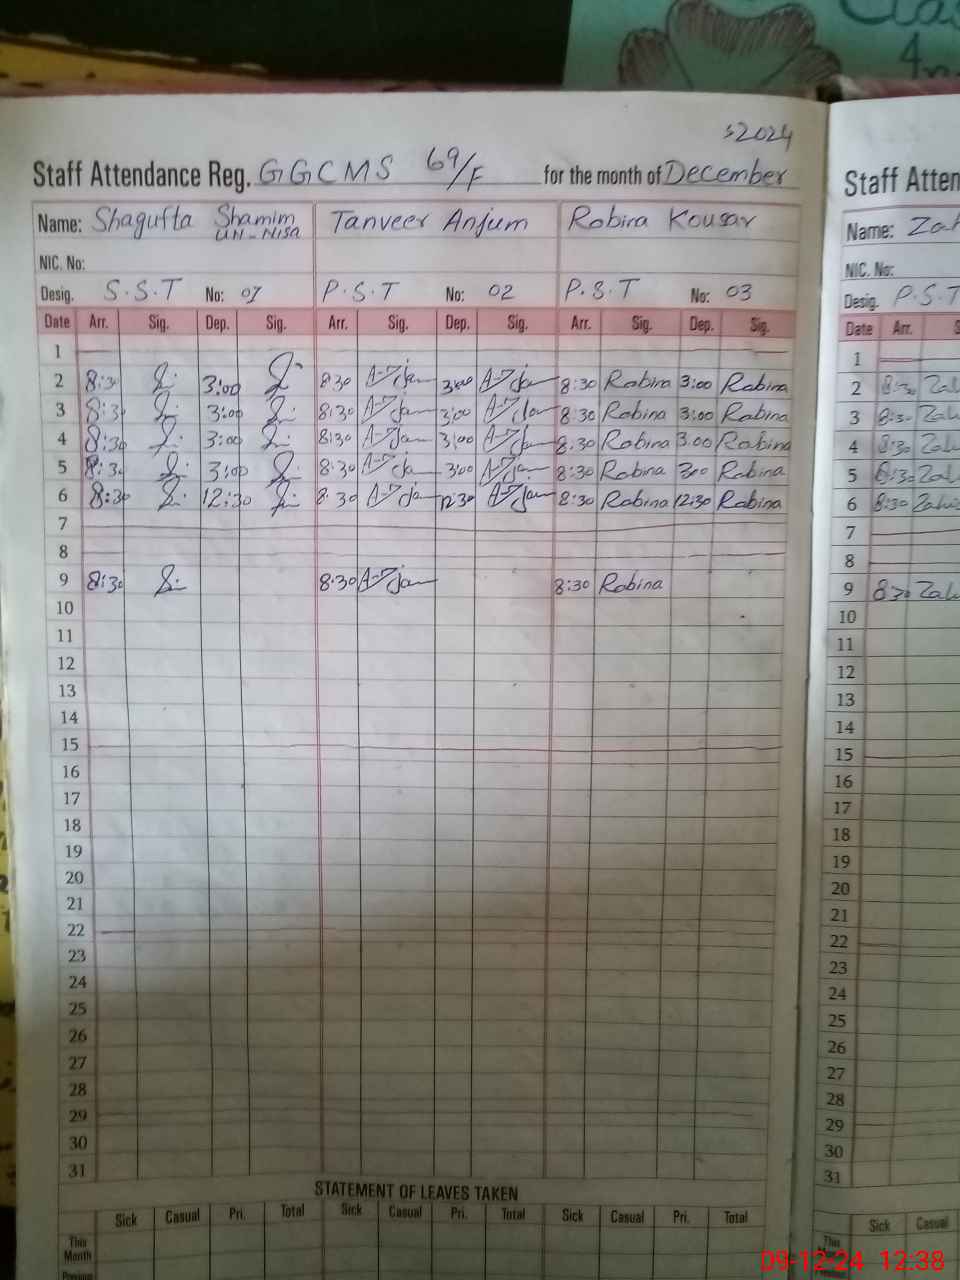 Clas
In
2024
Staff Attendance Reg. GGCMS 69/F for the month of December
Name: Shagufta Shamim Un-Nisa Tanveer Anjum Robina Kousar
NIC. No:
Desig. S.S.T No: 01 P.S.T No: 02 P.S.T No: 03
Date Arr. Sig. Dep. Sig. Arr. Sig. Dep. Sig. Arr. Sig. Dep. Sig.
1
2 8:30 3:00 830 3:00 8:30 Robina 3:00 Robina
3 8:30 3:00 8:30 3:00 8:30 Robina 3:00 Robina
4 8:30 3:00 8:30 3:00 8.30 Robina 3.00 Robina
5 8:30 3:00 8:30 3:00 8:30 Robina 300 Robina
6 8:30 12:30 8.30 12:30 8:30 Robina 12:30 Robina
7
8
9 8:30 8.30 8:30 Robina
10
11
12
13
14
15
16
17
18
19
20
21
22
23
24
25
26
27
28
29
30
31
STATEMENT OF LEAVES TAKEN
Sick Casual Pri. Total Sick Casual Pri. Total Sick Casual Pri. Total
This Month
Previous
Staff Atten
Name: Zah
NIC. No:
Desig. P.S.T
Date Arr. S
1
2 8:30 Zah
3 8:30 Zah
4 8:30 Zah
5 8:30 Zah
6 8:30 Zahi
7
8
9 8:30 Zah
10
11
12
13
14
15
16
17
18
19
20
21
22
23
24
25
26
27
28
29
30
31
Sick Casual
This
09-12-24 12:38